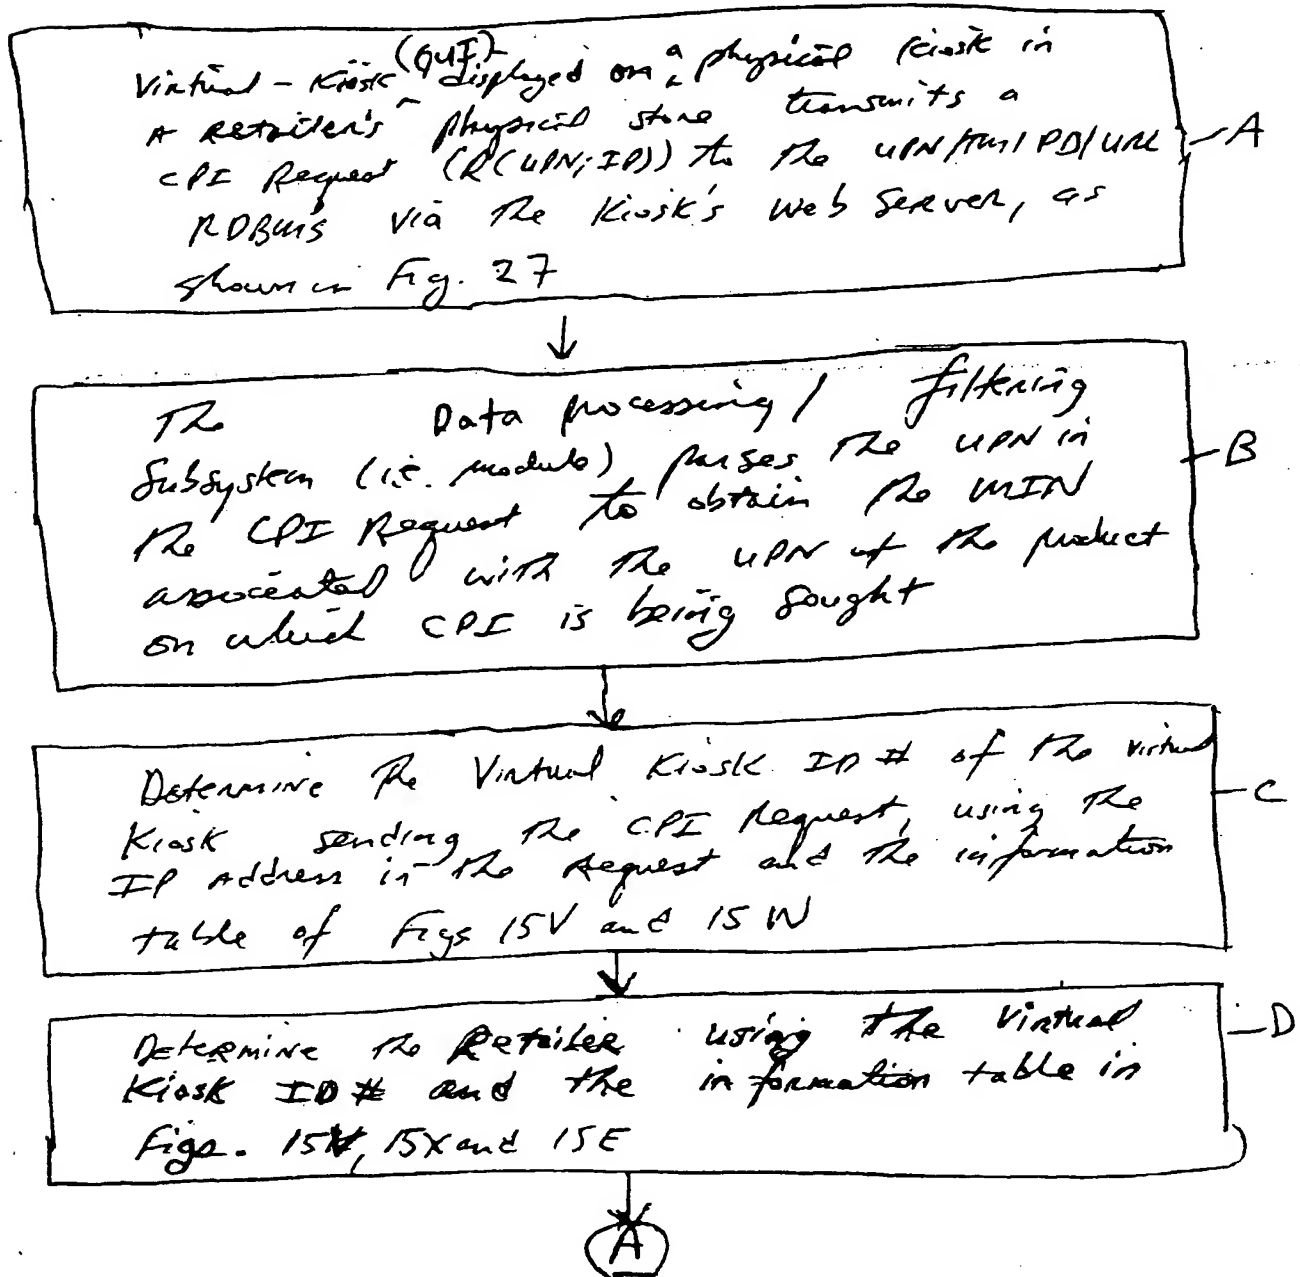 Virtual-Kiosk (GUI) displayed on a physical kiosk in
A Retailer's physical store transmits a
CPI Request (R(UPN;IP)) to the UPN/TM/PD/URL
RDBMS via the Kiosk's web server, as
shown in Fig. 27
A
The Data processing/filtering
Subsystem (i.e. module) parses the UPN in
the CPI Request to obtain the MIN
associated with the UPN of the product
on which CPI is being sought
B
Determine the Virtual Kiosk ID # of the virtual
Kiosk sending the CPI Request, using the
IP Address in the Request and the information
table of Figs 15V and 15W
C
Determine the Retailer using the Virtual
Kiosk ID # and the information table in
Figs. 15X and 15E
D
A